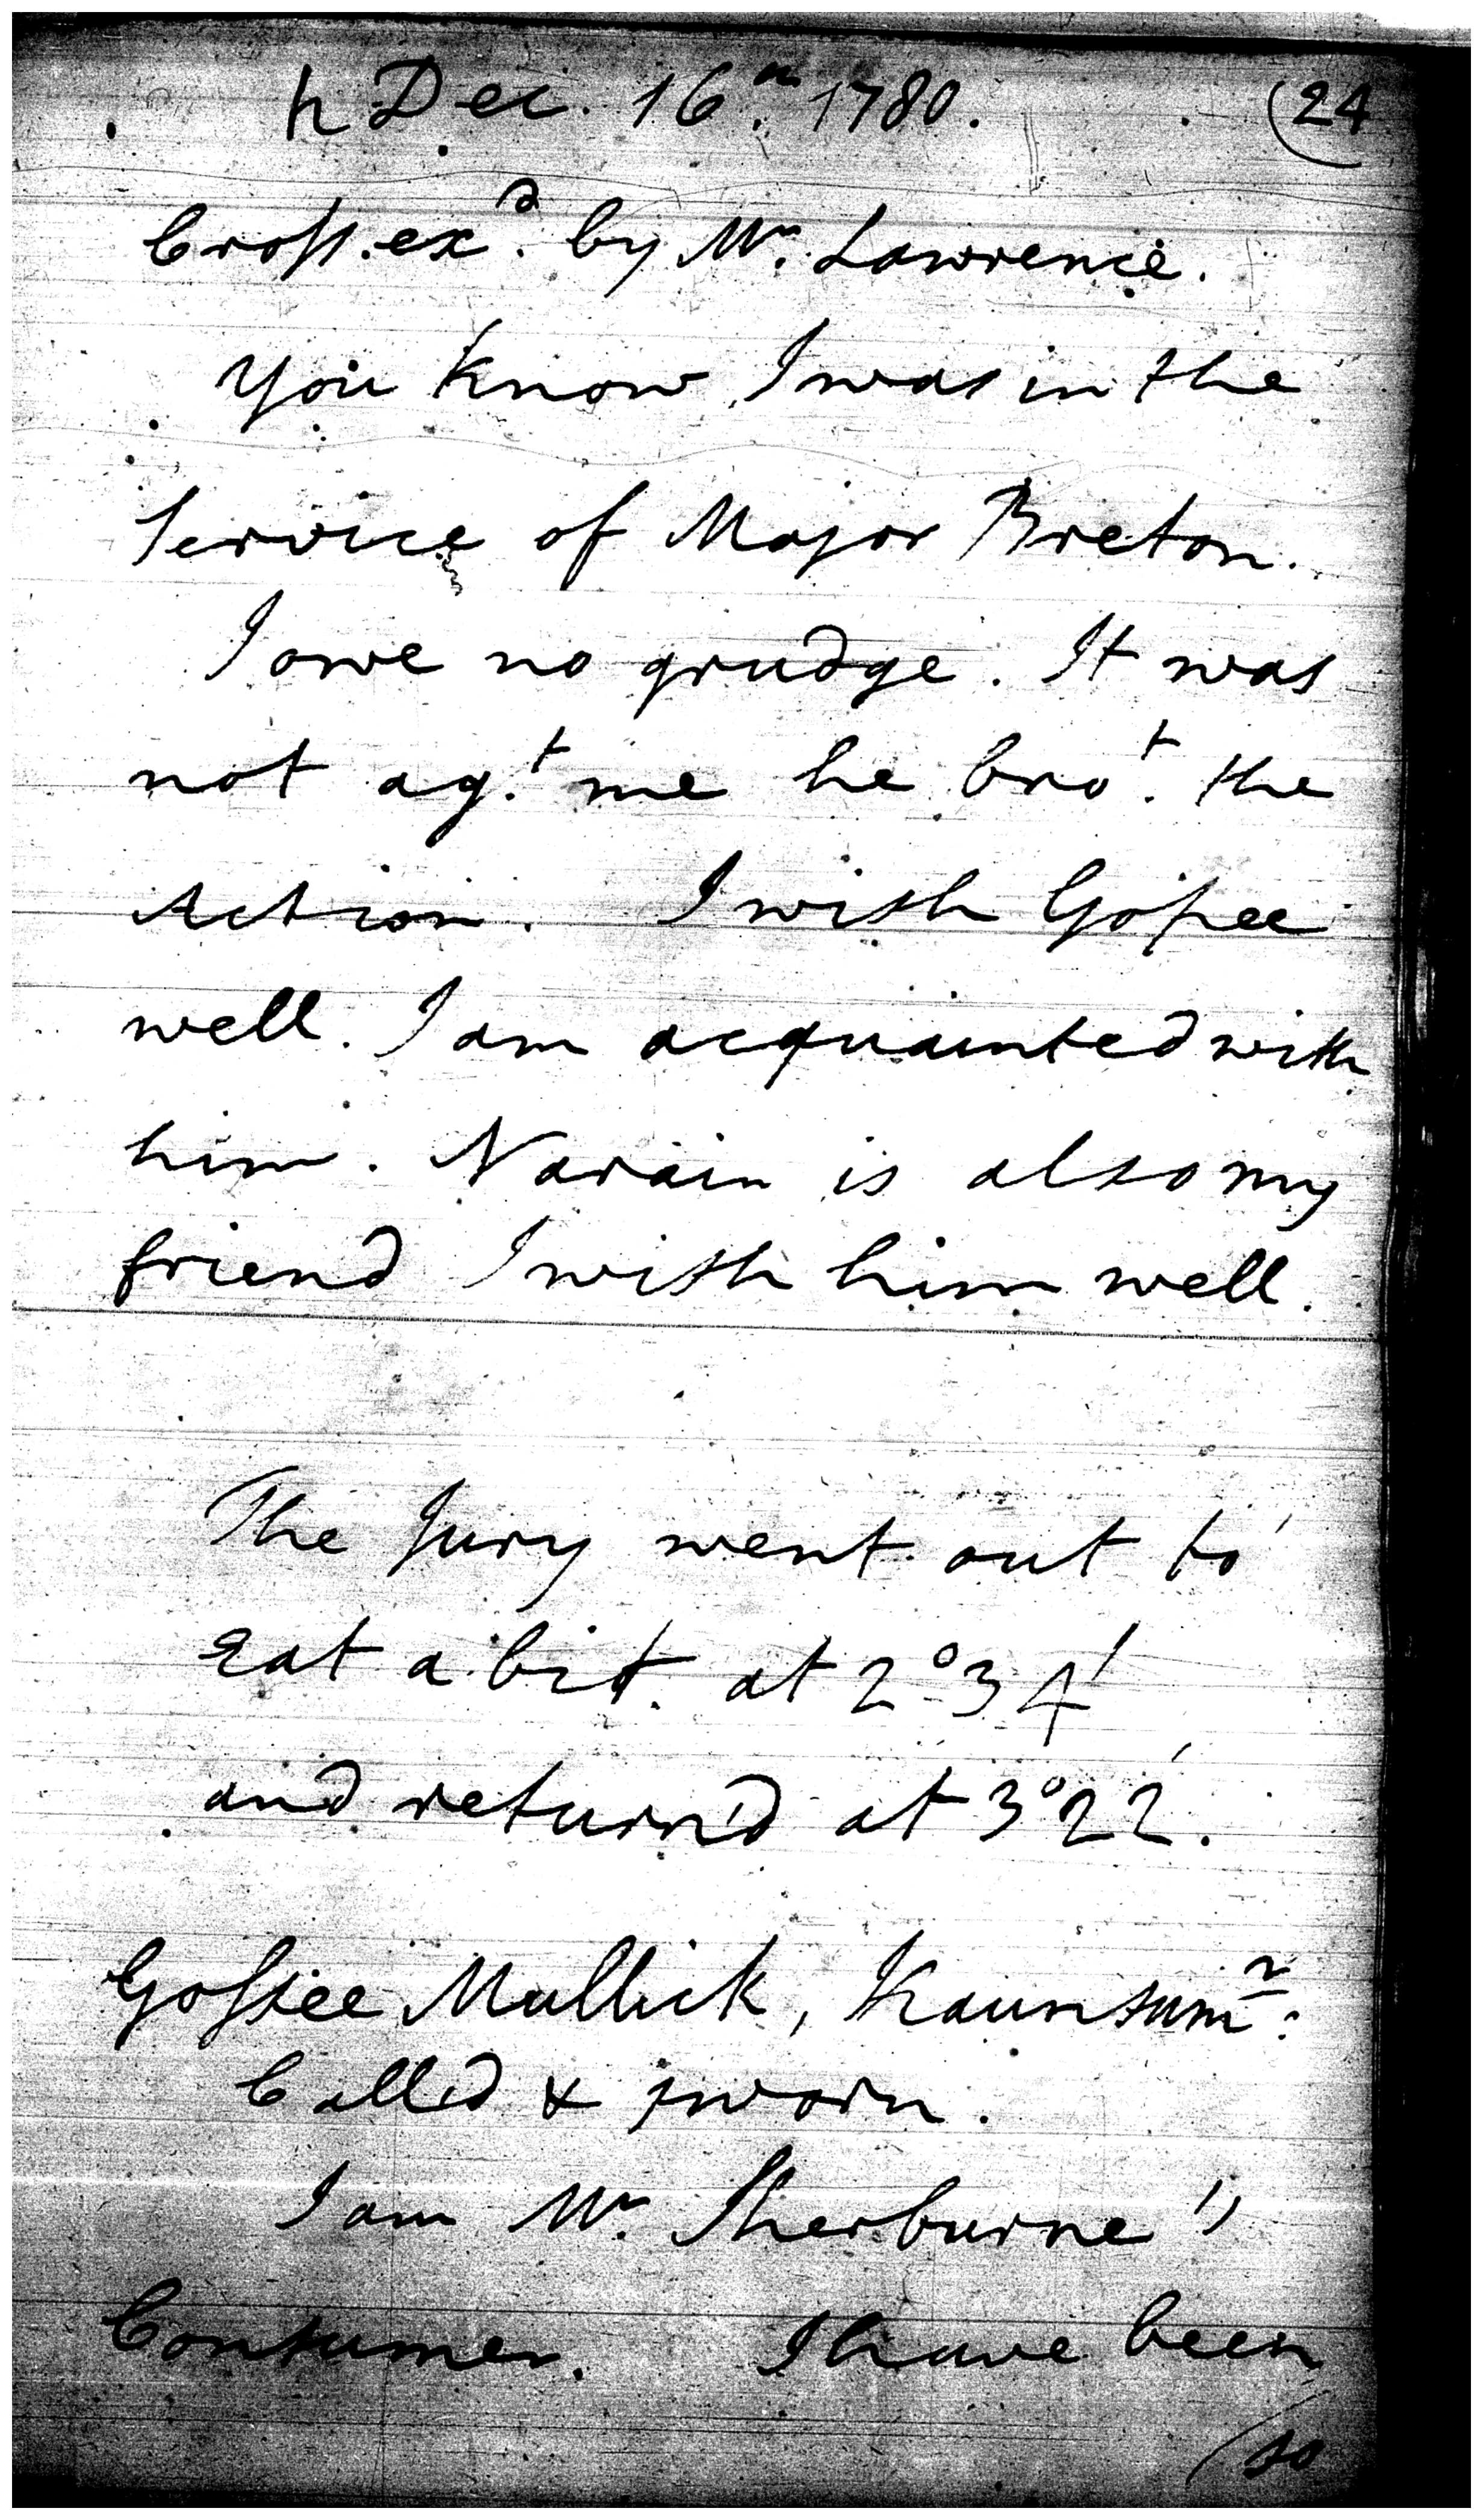 ♄ Dec. 16th 1780. (24
Cross.exd. by Mr. Lawrence.
You know I was in the
Service of Major Breton.
I owe no grudge. It was
not agt. me he brot. the
Action. I wish Gopee
well. I am acquainted with
him. Narain is also my
friend I wish him well.
The Jury went out to
Eat a bit. at 2° 34'
and return'd at 3° 22'.
Gossee Mullick, Kaunsumr.
Call'd & sworn.
I am Mr. Sherburne's
Consumer. I have been
(so